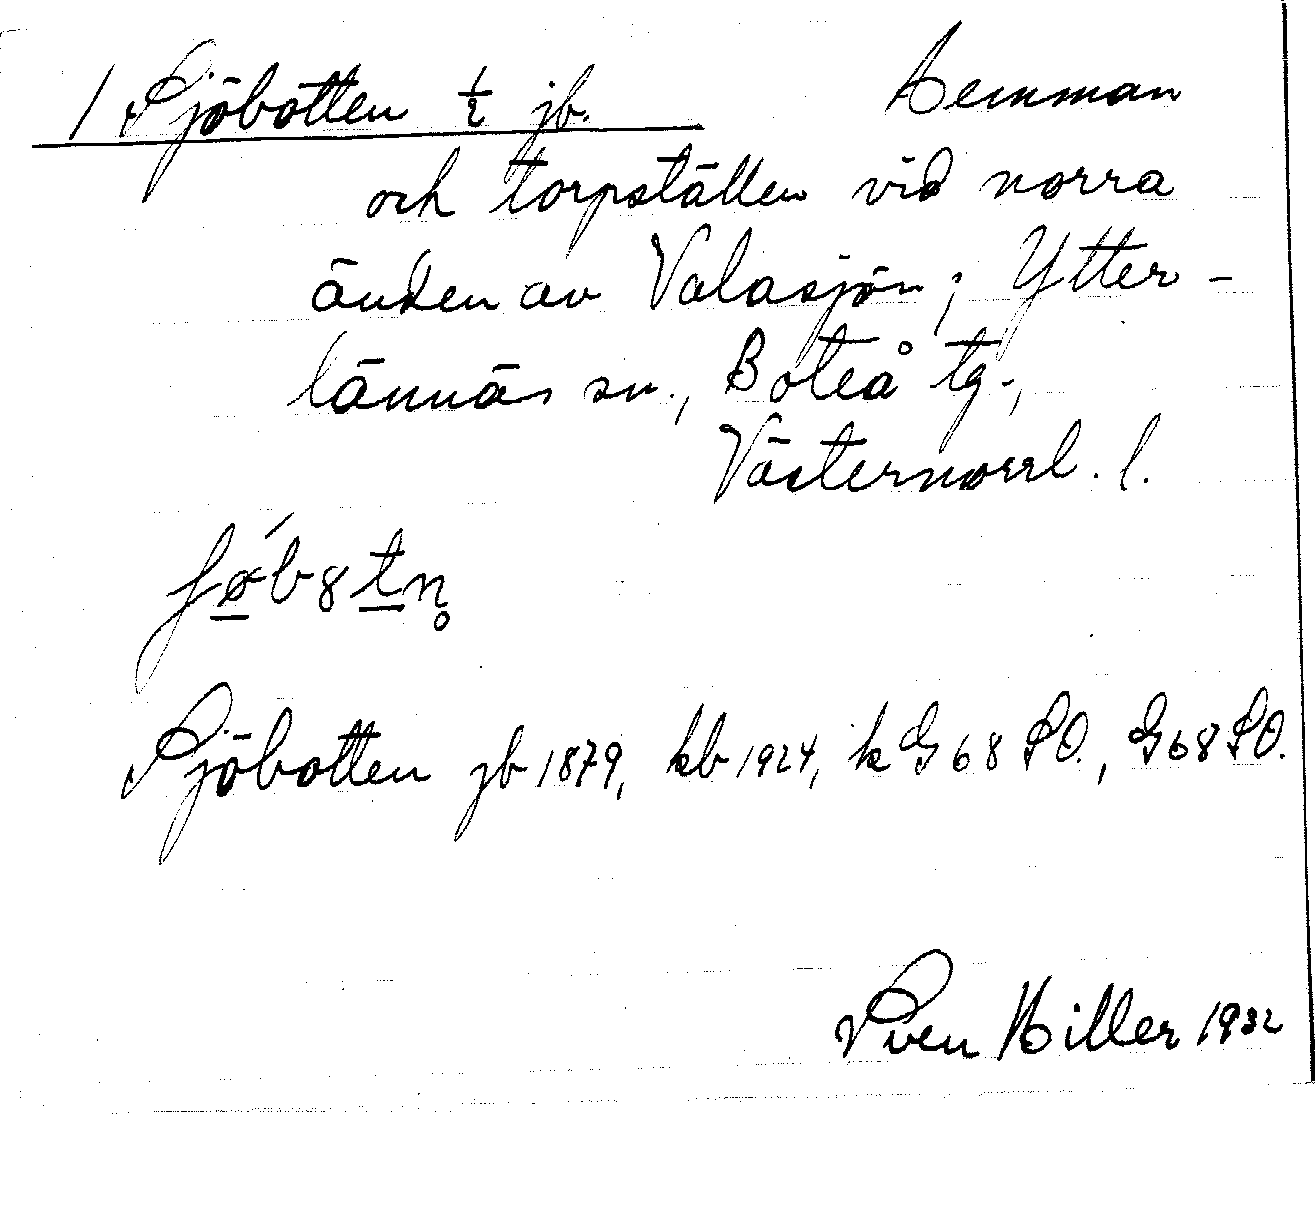 1 Sjöbotten ½ jb. Hemman
och torpställen vid norra
änden av Valasjön; Ytter-
lännäs sn., Boteå tg.,
Västernorrl. l.
ʃǿ̱b8t̲n̥
Sjöbotten jb 1879, kb 1924, k G 68 SO., G 68 SO.
Sven Hiller 1932